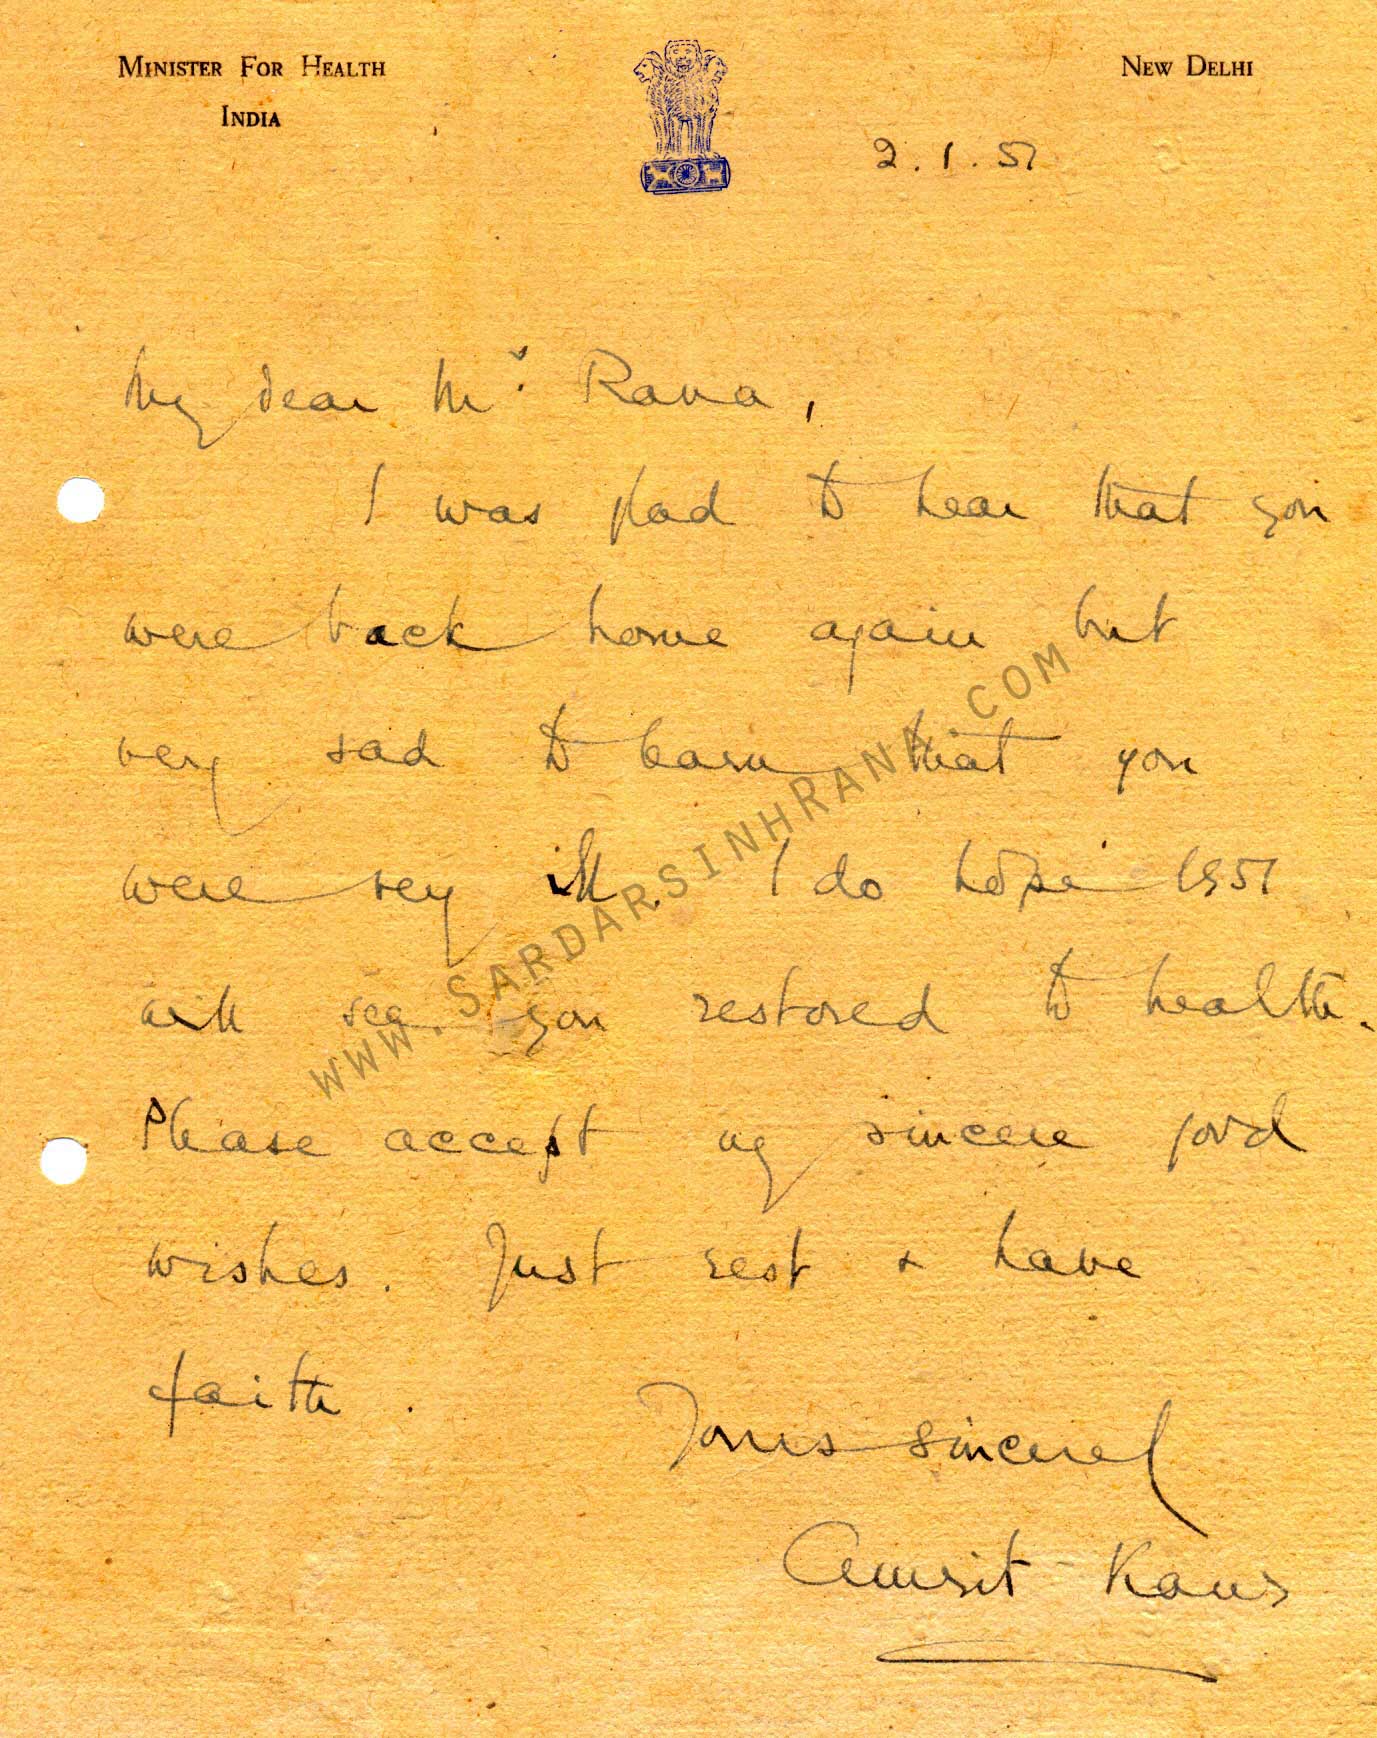 MINISTER FOR HEALTH
INDIA
NEW DELHI
2.1.51
My dear Mr Rana,
I was glad to hear that you
were back home again but
very sad to learn that you
were very ill. I do hope 1951
will see you restored to health.
Please accept my sincere good
wishes. Just rest & have
faith.
Yours sincerely
Amrit Kaur
WWW.SARDARSINHRANA.COM